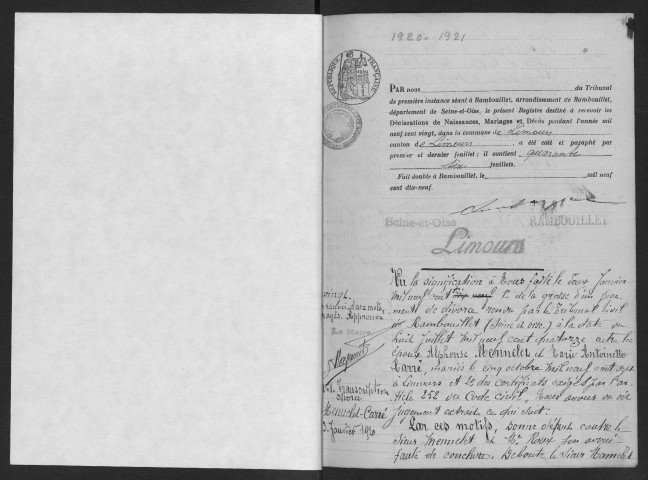 1920-1921
RÉPUBLIQUE FRANÇAISE
PAR nous du Tribunal
de première instance séant à Rambouillet, arrondissement de Rambouillet,
département de Seine-et-Oise, le présent Registre destiné à recevoir les
Déclarations de Naissances, Mariages et Décès pendant l'année mil
neuf cent vingt, dans la commune de Limours
canton de Limours, a été coté et paraphé par
premier et dernier feuillet; il contient quarante
six feuillets.
Fait double à Rambouillet, le mil neuf
cent dix-neuf.
Seine-et-Oise RAMBOUILLET
Limours
Vu la signification à Nous faite le deux Janvier
mil neuf cent dix neuf 1º de la grosse d'un juge
ment de divorce rendu par le Tribunal Civil
de Rambouillet (Seine et Oise) à la date du
huit juillet mil neuf cent quatorze entre les
époux Alphonse Mennelet et Marie Antoinette
Carré, mariés le cinq octobre mil neuf cent sept
à Limours et 2º des certificats exigés par l'ar
ticle 252 du Code civil. Nous avons du dit
jugement extrait ce qui suit:
Par ces motifs, donne défaut contre le
sieur Mennelet et Me Roux son avoué
faute de conclure. Déboute le sieur Mennelet
vingt
Le Maire
Transcription
divorce
Mennelet-Carré
3 Janvier 1920